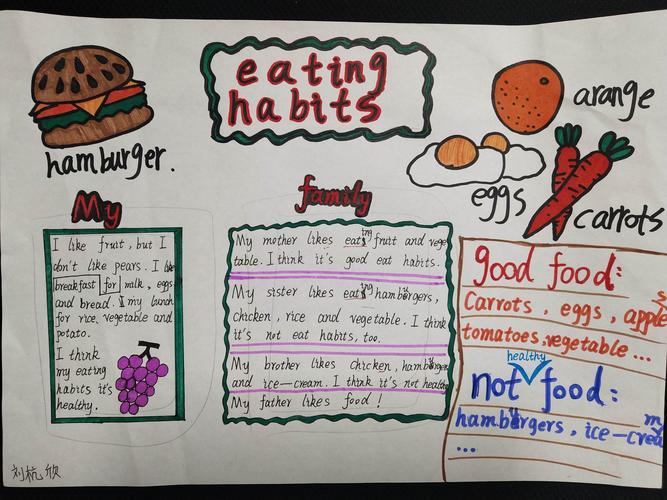 eating
habits
hamburger.
arange
eggs
carrots
My
I like fruit, but I
don't like pears. I like
breakfast for milk, eggs
and bread. I my lunch
for rice, vegetable and
potato.
I think
my eating
habits it's
healthy.
family
My mother likes eating fruit and vege
table. I think it's good eat habits.
My sister likes eating hambürgers,
chicken, rice and vegetable. I think
it's not eat habits, too.
My brother likes chicken, hamburgers
and ice-cream. I think it's not healthy
My father likes food!
good food:
Carrots, eggs, apples
tomatoes, vegetable...
healthy
not food:
hamburgers, ice-cream
...
刘杭欣